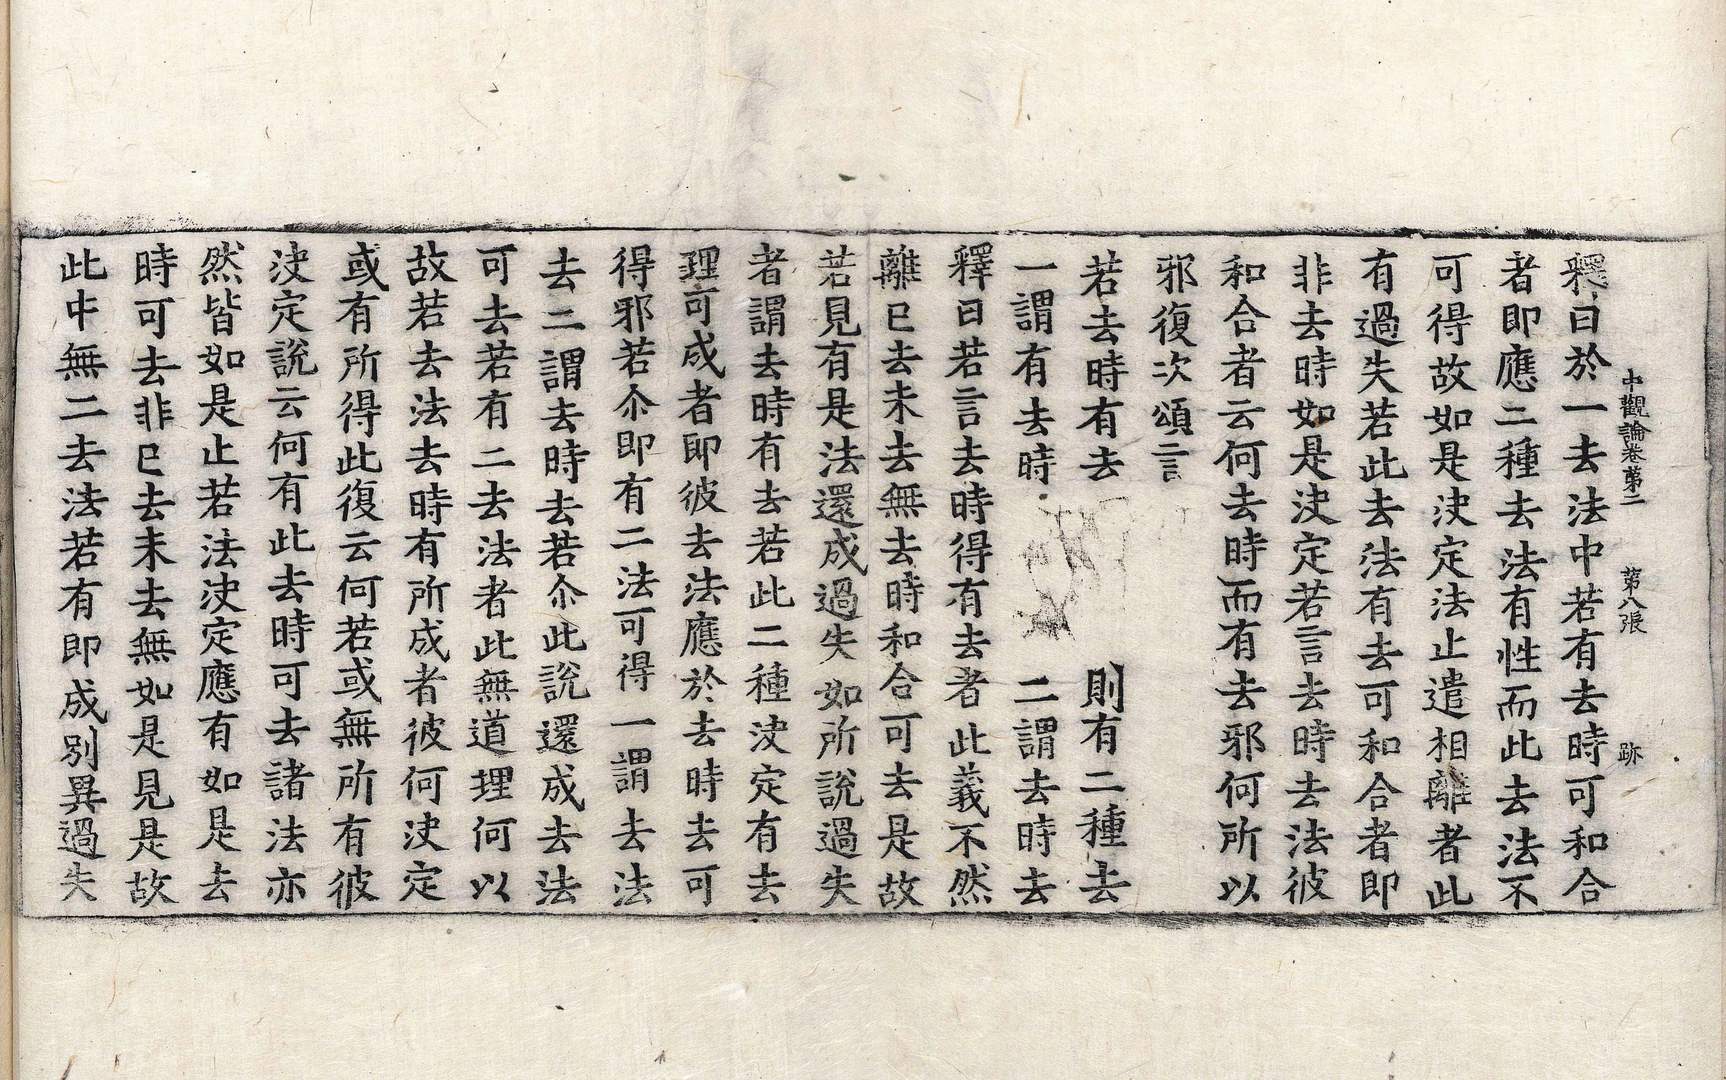 中觀論卷第二　第八張　跡
釋曰於一去法中若有去時可和合
者即應二種去法有性而此去法不
可得故如是决定法止遣相離者此
有過失若此去法有去可和合者即
非去時如是决定若言去時去法彼
和合者云何去時而有去邪何所以
邪復次頌言
若去時有去　則有二種去
一謂有去時　二謂去時去
釋曰若言去時得有去者此義不然
離已去未去無去時和合可去是故
若見有是法還成過失如所說過失
者謂去時有去若此二種决定有去
理可成者即彼去法應於去時去可
得邪若尒即有二法可得一謂去法
去二謂去時去若尒此說還成去法
可去若有二去法者此無道理何以
故若去法去時有所成者彼何决定
或有所得此復云何若或無所有彼
决定說云何有此去時可去諸法亦
然皆如是止若法决定應有如是去
時可去非已去未去無如是見是故
此中無二去法若有即成別異過失